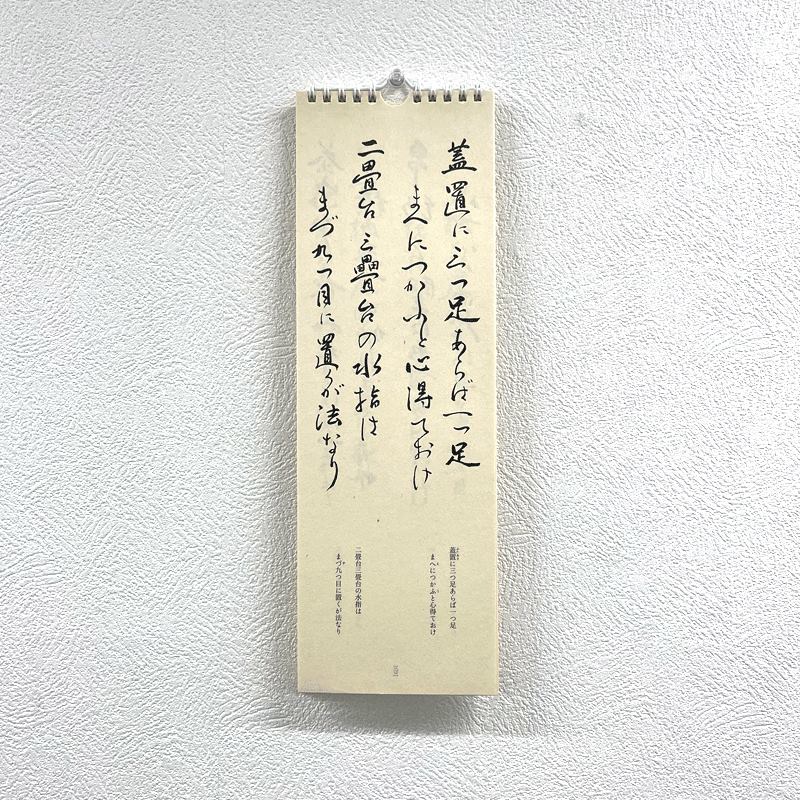 蓋置に三つ足あらば一つ足
まへにつかふと心得ておけ
二畳台三疊台の水指は
まづ九つ目に置くが法なり
蓋置に三つ足あらば一つ足
まへにつかふと心得ておけ
二畳台三畳台の水指は
まづ九つ目に置くが法なり